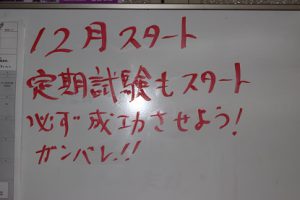 12月スタート
定期試験もスタート
必ず成功させよう!
ガンバレ!!